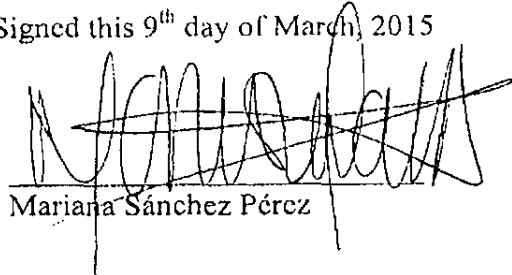 Signed this 9th day of March, 2015
Mariana Sánchez Pérez